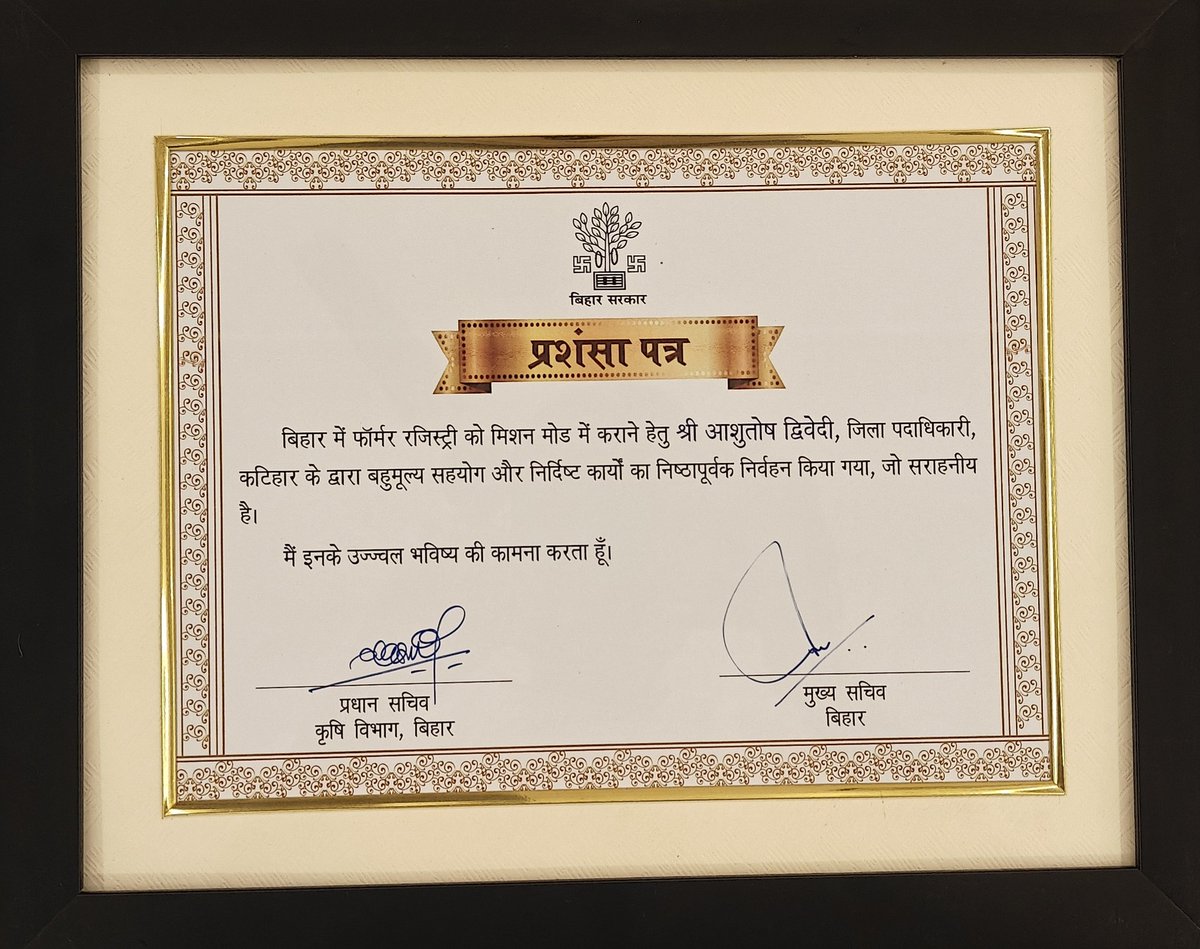 बिहार सरकार
प्रशंसा पत्र
बिहार में फॉर्मर रजिस्ट्री को मिशन मोड में कराने हेतु श्री आशुतोष द्विवेदी, जिला पदाधिकारी,
कटिहार के द्वारा बहुमूल्य सहयोग और निर्दिष्ट कार्यों का निष्ठापूर्वक निर्वहन किया गया, जो सराहनीय
है।
मैं इनके उज्ज्वल भविष्य की कामना करता हूँ।
प्रधान सचिव
कृषि विभाग, बिहार
मुख्य सचिव
बिहार